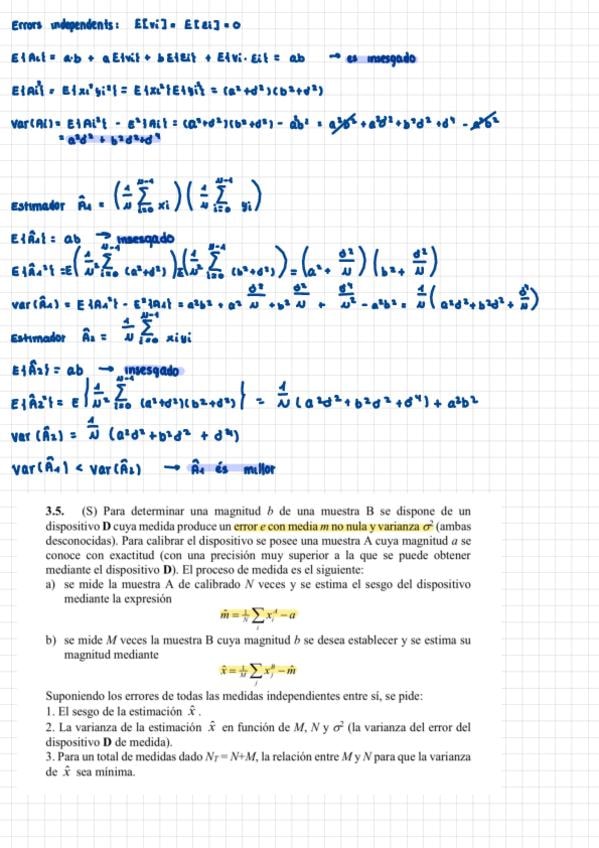 Errors independents: E[vi] = E[εi] = 0
E{Ai} = a·b + a E{vi} + b E{εi} + E{vi·εi} = ab → es insesgado
E{Ai²} = E{xi²yi²} = E{xi²}E{yi²} = (a²+σ²)(b²+σ²)
Var(Ai) = E{Ai²} - E²{Ai} = (a²+σ²)(b²+σ²) - a²b² = a²b² + a²σ² + b²σ² + σ⁴ - a²b²
= a²σ² + b²σ² + σ⁴
Estimador Â₁ = (1/N ∑_{i=0}^{N-1} xi)(1/N ∑_{i=0}^{N-1} yi)
E{Â₁} = ab → insesgado
E{Â₁²} = E(1/N² ∑_{i=0}^{N-1} (a²+σ²))E(1/N² ∑_{i=0}^{N-1} (b²+σ²)) = (a² + σ²/N)(b² + σ²/N)
var(Â₁) = E{Â₁²} - E²{Â₁} = a²b² + a² σ²/N + b² σ²/N + σ⁴/N² - a²b² = 1/N (a²σ² + b²σ² + σ⁴/N)
Estimador Â₂ = 1/N ∑_{i=0}^{N-1} xiyi
E{Â₂} = ab → insesgado
E{Â₂²} = E{1/N² ∑_{i=0}^{N-1} (a²+σ²)(b²+σ²)} = 1/N (a²σ² + b²σ² + σ⁴) + a²b²
var(Â₂) = 1/N (a²σ² + b²σ² + σ⁴)
var(Â₁) < var(Â₂) → Â₁ és millor
3.5. (S) Para determinar una magnitud b de una muestra B se dispone de un
dispositivo D cuya medida produce un error e con media m no nula y varianza σ² (ambas
desconocidas). Para calibrar el dispositivo se posee una muestra A cuya magnitud a se
conoce con exactitud (con una precisión muy superior a la que se puede obtener
mediante el dispositivo D). El proceso de medida es el siguiente:
a) se mide la muestra A de calibrado N veces y se estima el sesgo del dispositivo
mediante la expresión
m̂ = 1/N ∑_i x_i^A − a
b) se mide M veces la muestra B cuya magnitud b se desea establecer y se estima su
magnitud mediante
x̂ = 1/M ∑_j x_j^B − m̂
Suponiendo los errores de todas las medidas independientes entre sí, se pide:
1. El sesgo de la estimación x̂ .
2. La varianza de la estimación x̂ en función de M, N y σ² (la varianza del error del
dispositivo D de medida).
3. Para un total de medidas dado N_T = N+M, la relación entre M y N para que la varianza
de x̂ sea mínima.